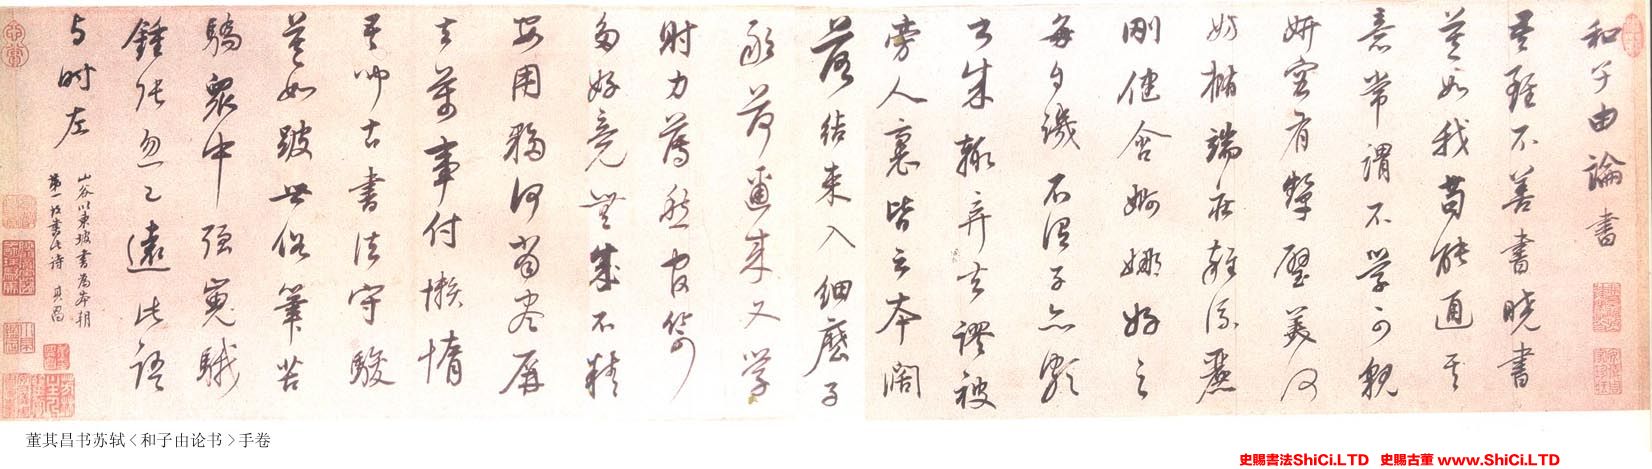 和子由論書
吾雖不善書曉書
莫如我苟能通其
意常謂不學可貌
妍容有顰璧美何
妨橢端莊雜流麗
剛健含婀娜好之
每自譏不謂子亦頗
書成輒弃去謬被
旁人裹皆云本闊
落結束入細麼子
敢荷邇來又學
射力薄愁官笴
多好竟無成不精
安用夥何當盡屏
去萬事付懶惰
吾聞古書法守駿
莫如跛世俗筆苦
驕眾中強嵬騀
鍾張忽已遠此語
与時左
山谷以東坡書為本朝
第一故書此詩 其昌
董其昌书苏轼<和子由论书>手卷
史賜書法ShiCi.LTD 史賜古董 www.ShiCi.LTD